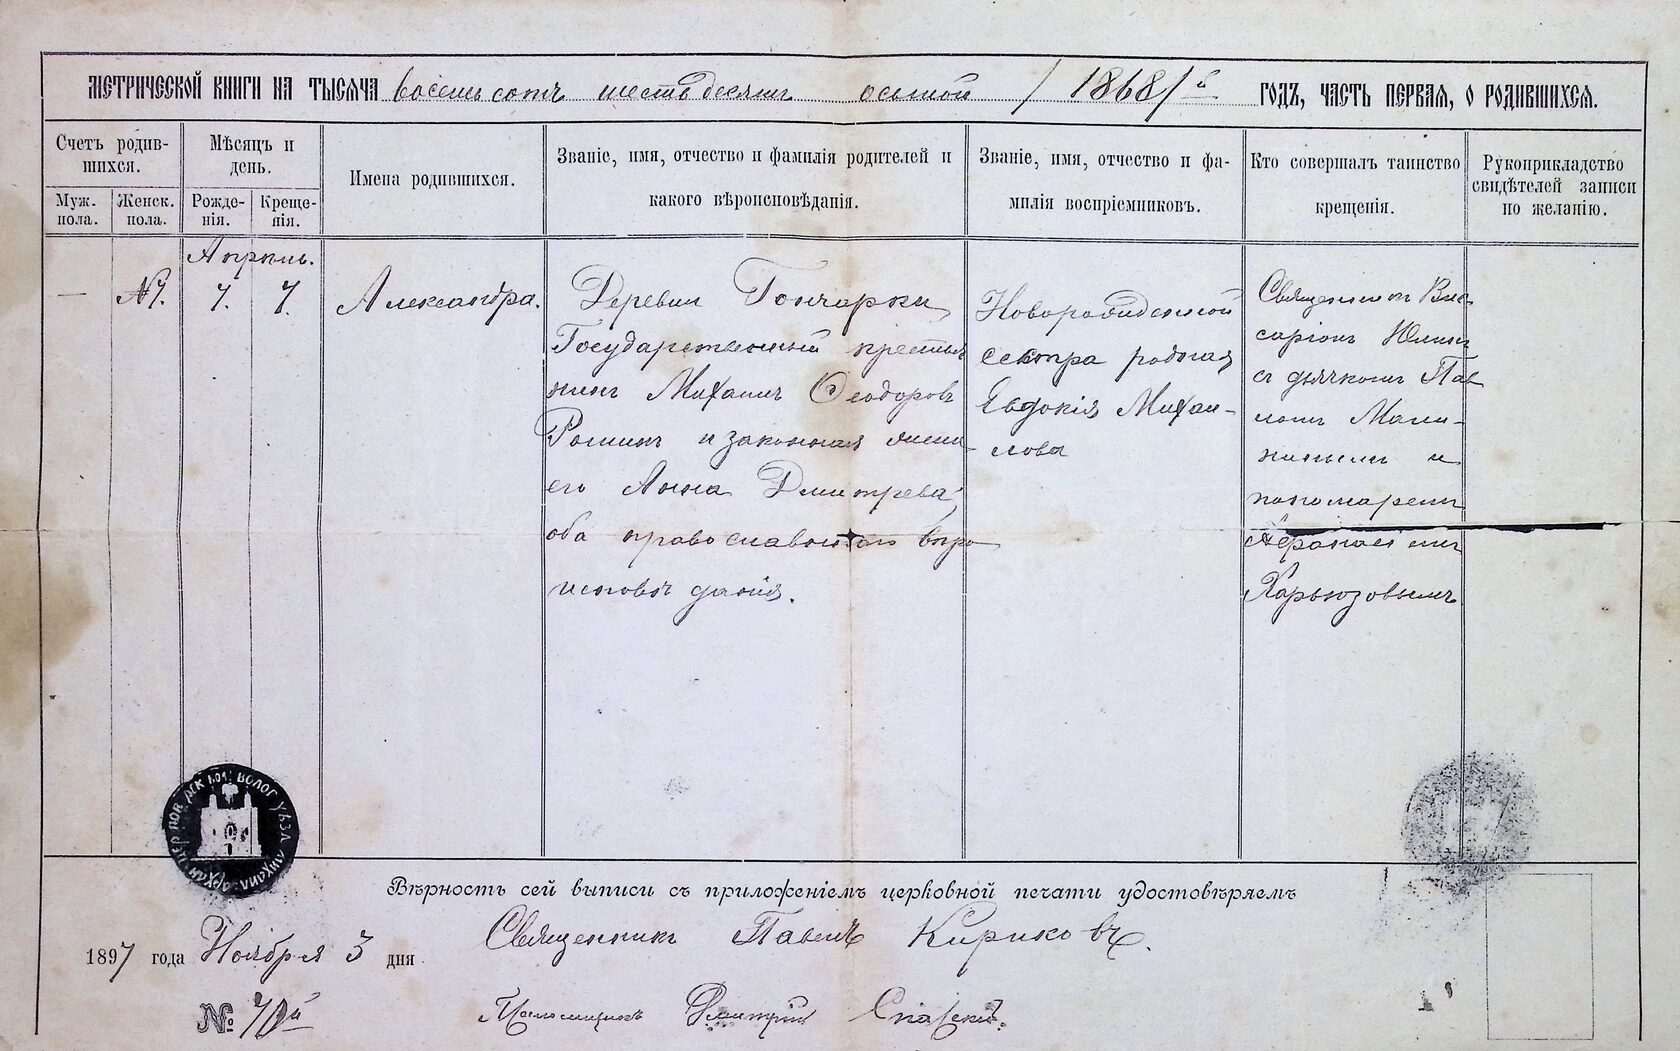 МЕТРИЧЕСКОЙ КНИГИ НА ТЫСЯЧА восемьсотъ шестьдесятъ осьмой /1868/й ГОДЪ, ЧАСТЬ ПЕРВАЯ, О РОДИВШИХСЯ.
Счетъ родив-
шихся.
Муж.
пола.
Женск.
пола.
Мѣсяцъ и
день.
Рожде-
нія.
Креще-
нія.
Имена родившихся.
Званіе, имя, отчество и фамилія родителей и
какого вѣроисповѣданія.
Званіе, имя, отчество и фа-
милія воспріемниковъ.
Кто совершалъ таинство
крещенія.
Рукоприкладство
свидѣтелей записи
по желанію.
—
№7.
Апрѣль.
7.
7.
Александра.
Деревни Гончарки
Государственный крестья
нинъ Михаилъ Ѳеодоровъ
и законная жена
его Анна Дмитрева,
оба православнаго вѣро
исповѣданія.
Новорожденной
сестра родная
Евдокія Михаи-
лова
Священникъ Вис-
саріонъ
съ дьячкомъ Пав
ломъ Мали-
нинымъ и
пономаремъ
Аѳанасіемъ
Харьюзовымъ
ПОВ ВОЛОГ УѢЗД МИХАИЛ АРХАН ЦЕР
Вѣрность сей выписи съ приложеніемъ церковной печати удостовѣряемъ
1897 года Ноября 3 дня
Священникъ Павелъ Кириковъ.
№ 70й
Псаломщикъ Дмитрій Спасскій.